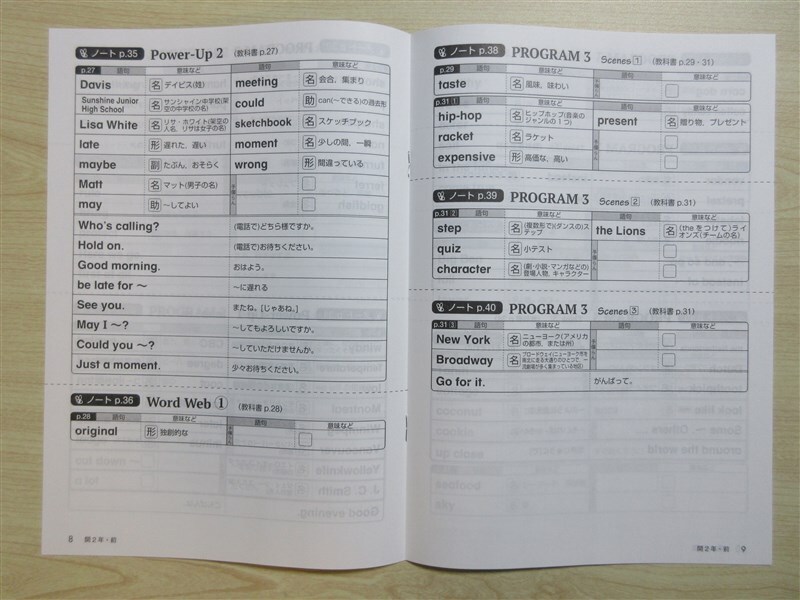 ノート p.35 Power-Up 2 (教科書 p.27)
p.27 語句 意味など 語句 意味など
Davis 名 デイビス(姓) meeting 名 会合、集まり
Sunshine Junior High School 名 サンシャイン中学校(架空の中学校の名) could 助 can(〜できる)の過去形
Lisa White 名 リサ・ホワイト(架空の人名、リサは女子の名) sketchbook 名 スケッチブック
late 形 遅れた、遅い moment 名 少しの間、一瞬
maybe 副 たぶん、おそらく wrong 形 間違っている
Matt 名 マット(男子の名)
may 助 〜してよい
Who's calling? (電話で)どちら様ですか。
Hold on. (電話で)お待ちください。
Good morning. おはよう。
be late for 〜 〜に遅れる
See you. またね。[じゃあね。]
May I 〜? 〜してもよろしいですか。
Could you 〜? 〜していただけませんか。
Just a moment. 少々お待ちください。
ノート p.36 Word Web 1 (教科書 p.28)
p.28 語句 意味など 語句 意味など
original 形 独創的な
8 開2年・前
ノート p.38 PROGRAM 3 Scenes 1 (教科書 p.29・31)
p.29 語句 意味など 語句 意味など
taste 名 風味、味わい
p.31 1 語句 意味など 語句 意味など
hip-hop 名 ヒップホップ(音楽のジャンルの1つ) present 名 贈り物、プレゼント
racket 名 ラケット
expensive 形 高価な、高い
ノート p.39 PROGRAM 3 Scenes 2 (教科書 p.31)
p.31 2 語句 意味など 語句 意味など
step 名 (複数形で)(ダンスの)ステップ the Lions 名 (the をつけて)ライオンズ(チームの名)
quiz 名 小テスト
character 名 (劇・小説・マンガなどの)登場人物、キャラクター
ノート p.40 PROGRAM 3 Scenes 3 (教科書 p.31)
p.31 3 語句 意味など 語句 意味など
New York 名 ニューヨーク(アメリカの都市、または州)
Broadway 名 ブロードウェイ(ニューヨーク市を南北に走る大通りのひとつで、一流劇場が多く集まっている地区)
Go for it. がんばって。
開2年・前 9